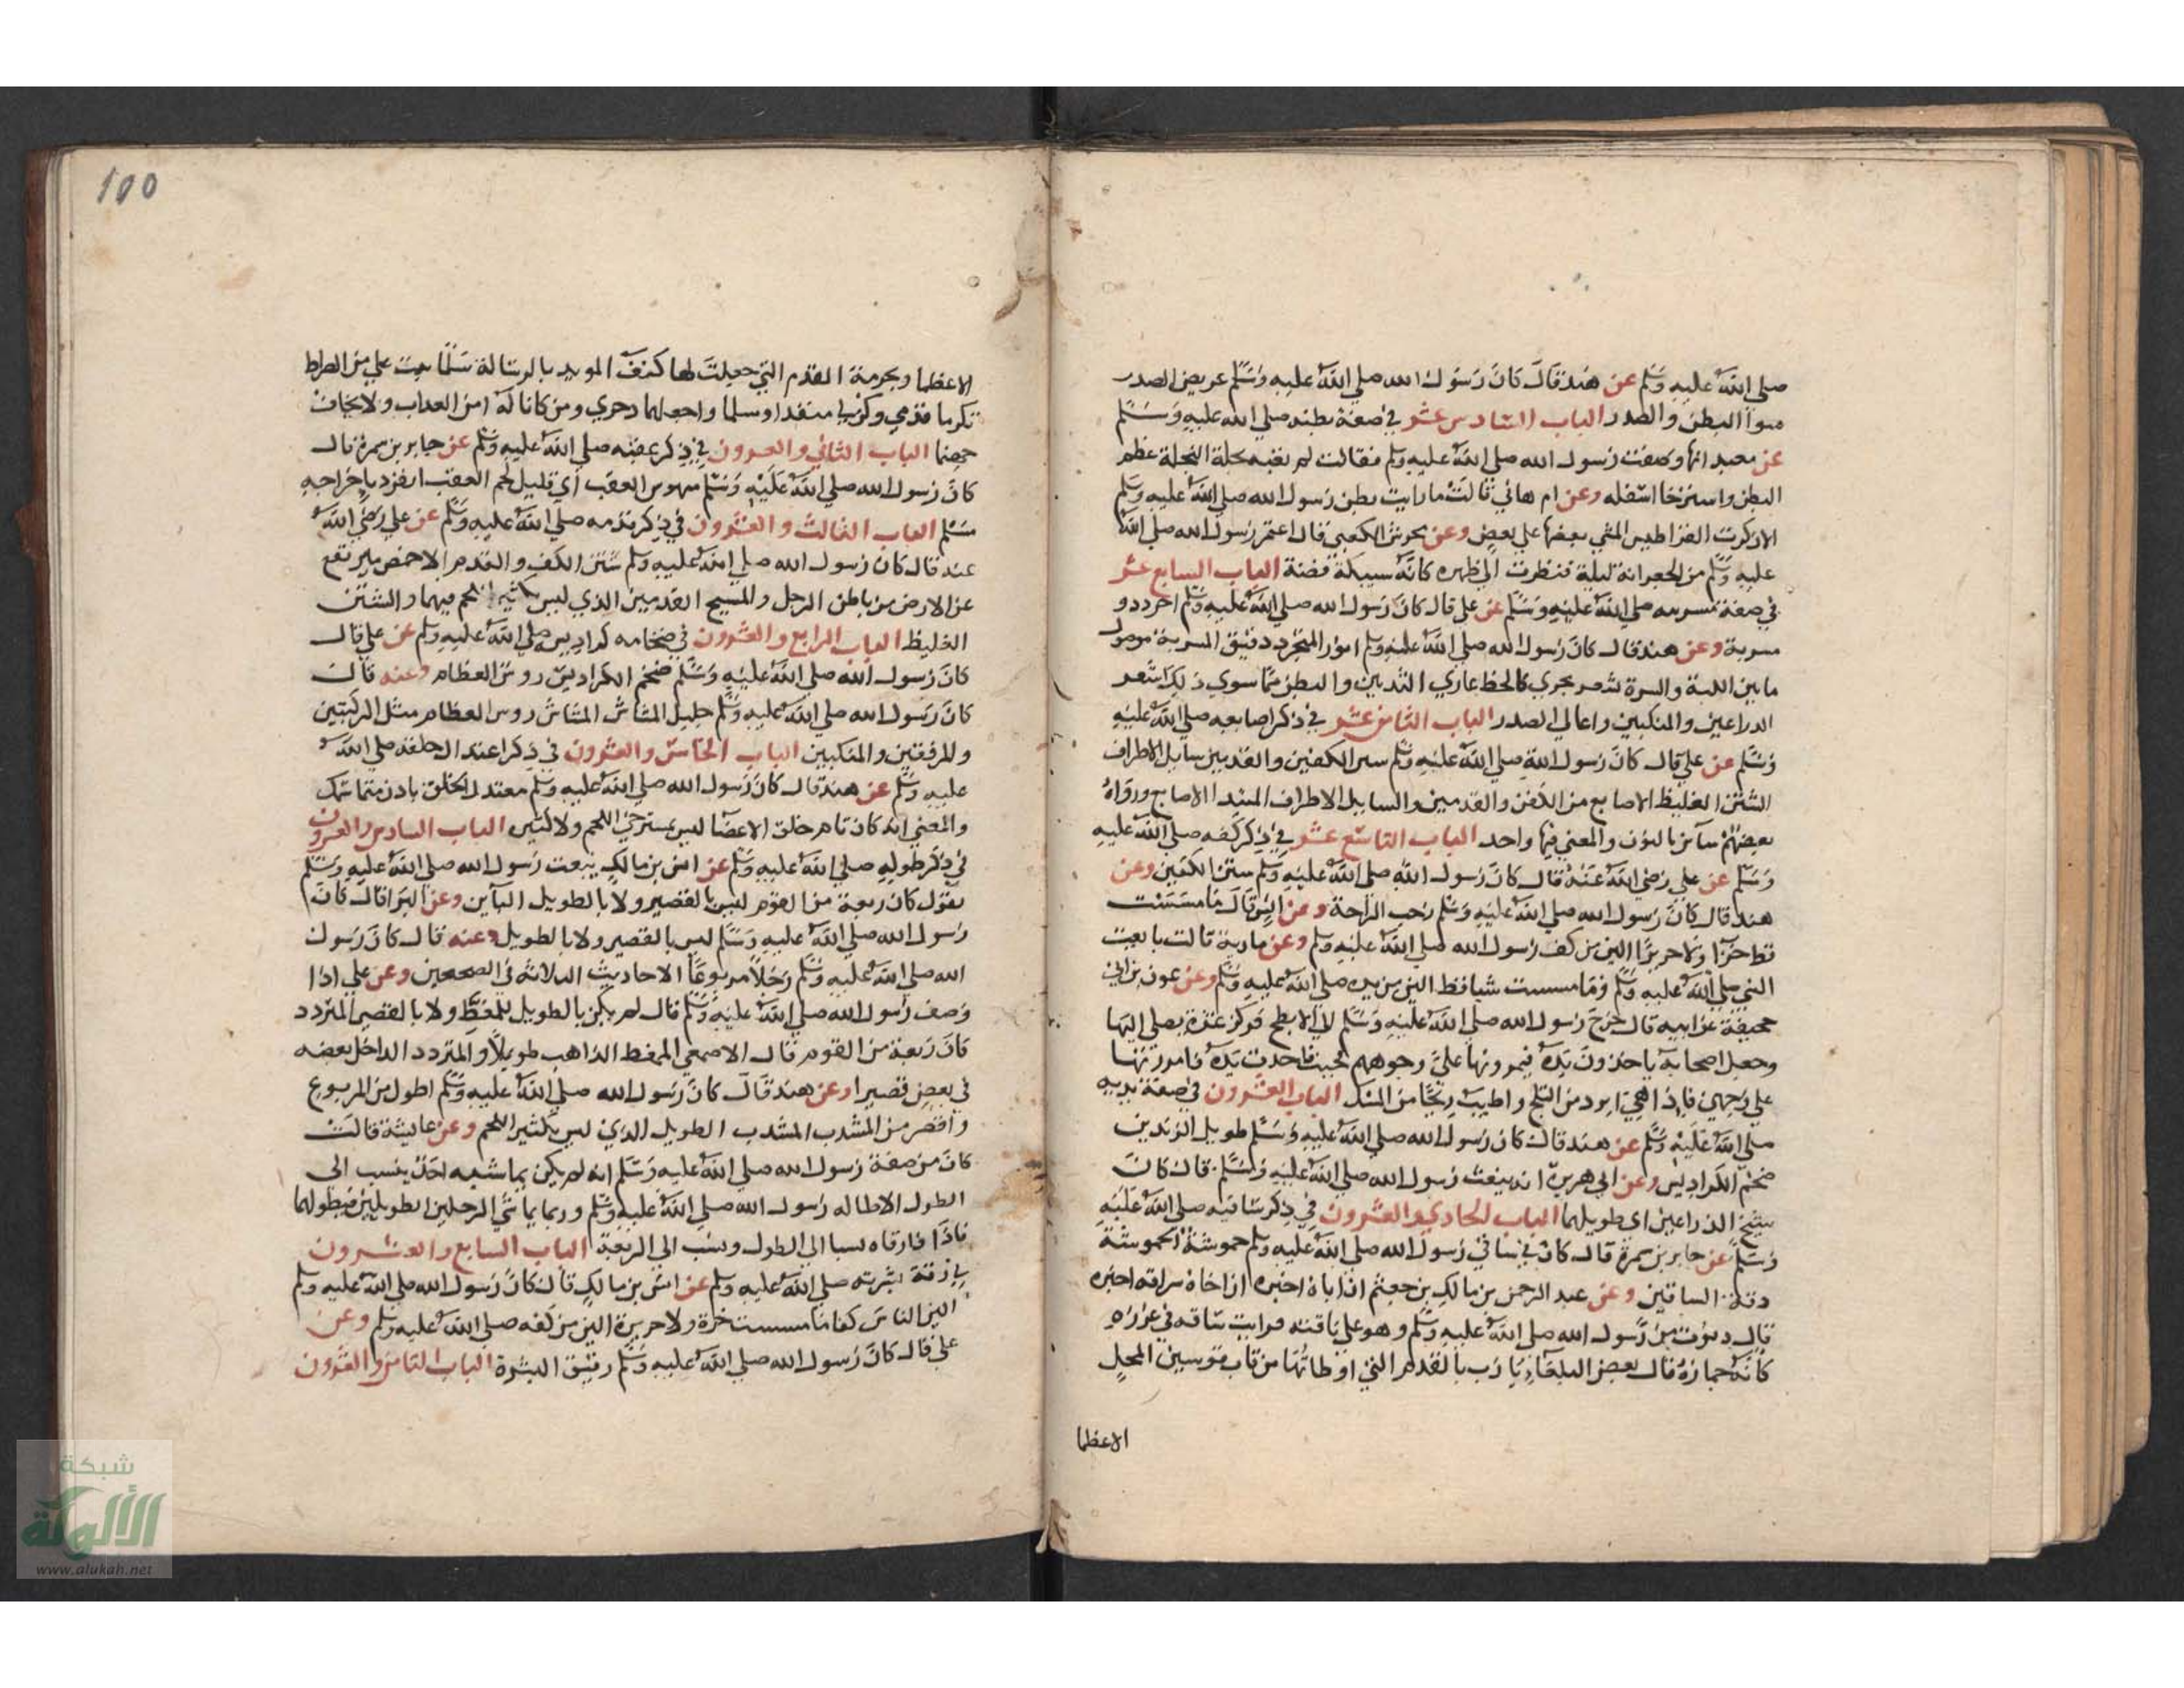 صلي الله عليه وسلم عن هند قال كان رسول الله صلي الله عليه وسلم عريض الصدر
سوآ البطن والصدر الباب السادس عشر في صفة بطنه صلي الله عليه وسلم
عن معبد انها وصفت رسول الله صلي الله عليه وسلم فقالت لم تعبه نجلة النجلة عظم
البطن واسترخا اسفله وعن ام هاني قالت ما رايت بطن رسول الله صلي الله عليه وسلم
الا ذكرت القراطيس المثني بعضها علي بعض وعن محرش الكعبي قال اعتمر رسول الله صلي الله
عليه وسلم من الجعرانة ليلة فنظرت الي ظهره كانه سبيكة فضة الباب السابع عشر
في صفة مسربته صلي الله عليه وسلم عن علي قال كان رسول الله صلي الله عليه وسلم اجرد ذو
مسربة وعن هند قال كان رسول الله صلي الله عليه وسلم انور المتجرد دقيق المسربة موصول
ما بين اللبة والسرة بشعر يجري كالخط عاري الثديين والبطن مما سوي ذلك اشعر
الدراعين والمنكبين واعالي الصدر الباب الثامن عشر في ذكر اصابعه صلي الله عليه
وسلم عن علي قال كان رسول الله صلي الله عليه وسلم شثن الكفين والقدمين سايل الاطراف
الشثن الغليظ الاصابع من الكفين والقدمين والسايل الاطراف الممتد الاصابع ورواه
بعضهم ساين بالنون والمعني فيها واحد الباب التاسع عشر في ذكر كفه صلي الله عليه
وسلم عن علي رضي الله عنه قال كان رسول الله صلي الله عليه وسلم شثن الكفين وعن
هند قال كان رسول الله صلي الله عليه وسلم رحب الراحة وعن انس قال ما مسست
قط خزا ولا حريرا الين من كف رسول الله صلي الله عليه وسلم وعن مارية قالت بايعت
النبي صلي الله عليه وسلم وما مسست شيا قط الين من يده صلي الله عليه وسلم وعن عون بن ابي
جحيفة عن ابيه قال خرج رسول الله صلي الله عليه وسلم الي الابطح فركز عنزة يصلي اليها
وجعل اصحابه ياخذون يده فيمرونها علي وجوههم فاخذت يده فامررتها
علي وجهي فاذا هي ابرد من الثلج واطيب ريحا من المسك الباب العشرون في صفة يديه
صلي الله عليه وسلم عن هند قال كان رسول الله صلي الله عليه وسلم طويل الزندين
ضخم الكراديس وعن ابي هريرة انه ينعت رسول الله صلي الله عليه وسلم قال كان
شبح الذراعين اي طويلهما الباب الحادي والعشرون في ذكر ساقيه صلي الله عليه
وسلم عن جابر بن سمرة قال كان في ساقي رسول الله صلي الله عليه وسلم حموشة الحموشة
دقة الساقين وعن عبد الرحمن بن مالك بن جعشم ان اباه اخبره ان اخاه سراقه اخبره
قال دنوت من رسول الله صلي الله عليه وسلم وهو علي ناقته فرايت ساقه في غرزه
كانه جماره قال بعض البلغاء يا رب بالقدم التي اوطاتها من قاب قوسين المحل
الاعظما
100
الاعظما وبحرمة القدم التي جعلت لها كتف المويد بالرسالة سلما ثبت علي متن الصراط
تكرما قدمي وكن لي منقذا ومسلما واجعلهما ذخري ومن كانا له امن العداب ولا يخاف
جهنما الباب الثاني والعشرون في ذكر عقبه صلي الله عليه وسلم عن جابر بن سمرة قال
كان رسول الله صلي الله عليه وسلم منهوس العقب اي قليل لحم العقب انفرد باخراجه
مسلم الباب الثالث والعشرون في ذكر قدمه صلي الله عليه وسلم عن علي رضي الله
عنه قال كان رسول الله صلي الله عليه وسلم شثن الكف والقدم الاخمص يرتفع
عن الارض من باطن الرجل والمسيح القدمين الذي ليس بكثير اللحم فيهما والشثن
الغليظ الباب الرابع والعشرون في ضخامه كراديس صلي الله عليه وسلم عن علي قال
كان رسول الله صلي الله عليه وسلم ضخم الكراديس روس العظام وعنه قال
كان رسول الله صلي الله عليه وسلم جليل المشاش المشاش روس العظام مثل الركبتين
والمرفقين والمنكبين الباب الخامس والعشرون في ذكر اعتدال خلقه صلي الله
عليه وسلم عن هند قال كان رسول الله صلي الله عليه وسلم معتدل الخلق بادن متماسك
والمعني انه كان تام خلق الاعضا ليس بمسترخي اللحم ولا كثير الباب السادس والعشرون
في ذكر طوله صلي الله عليه وسلم عن انس بن مالك ينعت رسول الله صلي الله عليه وسلم
يقول كان ربعة من القوم ليس بالقصير ولا بالطويل الباين وعن البرا قال كان
رسول الله صلي الله عليه وسلم ليس بالقصير ولا بالطويل وعنه قال كان رسول
الله صلي الله عليه وسلم رجلا مربوعا الاحاديث الثلاثة في الصحيحين وعن علي اذا
وصف رسول الله صلي الله عليه وسلم قال لم يكن بالطويل الممغط ولا بالقصير المتردد
كان ربعة من القوم قال الاصمعي الممغط الذاهب طويلا والمتردد الداخل بعضه
في بعض قصيرا وعن هند قال كان رسول الله صلي الله عليه وسلم اطول من المربوع
واقصر من المشذب المشذب الطويل الذي ليس بكثير اللحم وعن عايشة قالت
كان من صفة رسول الله صلي الله عليه وسلم انه لم يكن يماشيه احد ينسب الي
الطول الا طاله رسول الله صلي الله عليه وسلم وربما ماشي الرجلين الطويلين فيطولهما
فاذا فارقاه نسبا الي الطول ونسب الي الربعة الباب السابع والعشرون
في رقة بشرته صلي الله عليه وسلم عن انس بن مالك قال كان رسول الله صلي الله عليه وسلم
الين الناس كفا ما مسست خزة ولا حريرة الين من كفه صلي الله عليه وسلم وعن
علي قال كان رسول الله صلي الله عليه وسلم رقيق البشرة الباب الثامن والعشرون
شبكة
الألوكة
www.alukah.net